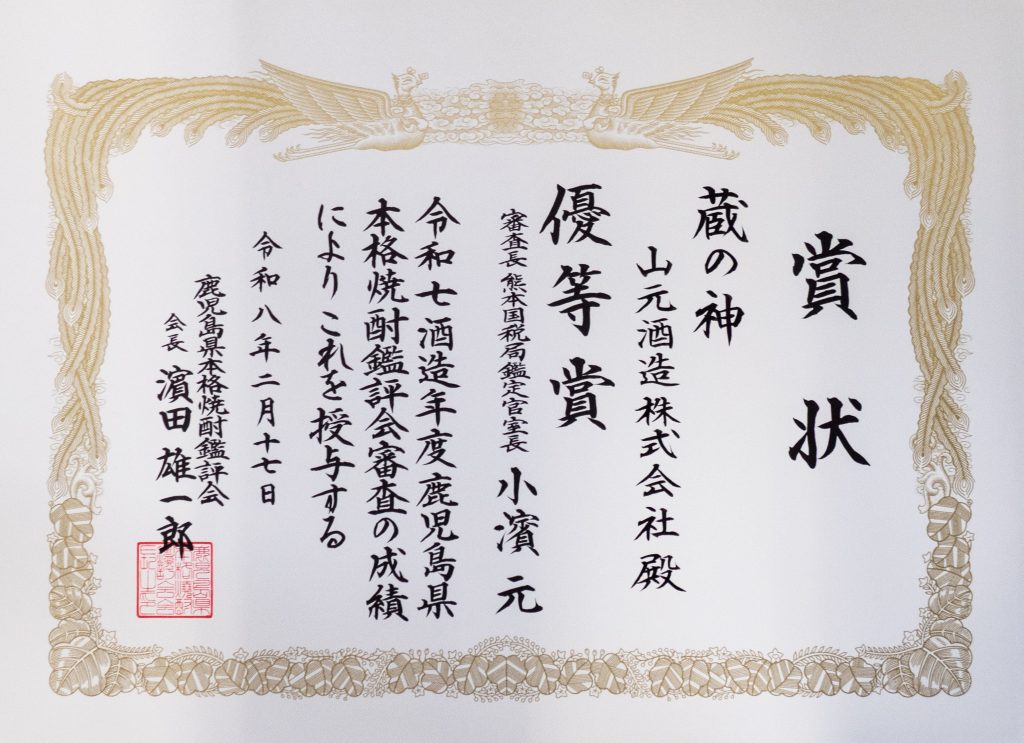 賞状
蔵の神
山元酒造株式会社殿
優等賞
審査長 熊本国税局鑑定官室長 小濱 元
令和七酒造年度鹿児島県
本格焼酎鑑評会審査の成績
によりこれを授与する
令和八年二月十七日
鹿児島県本格焼酎鑑評会
会長 濵田雄一郎